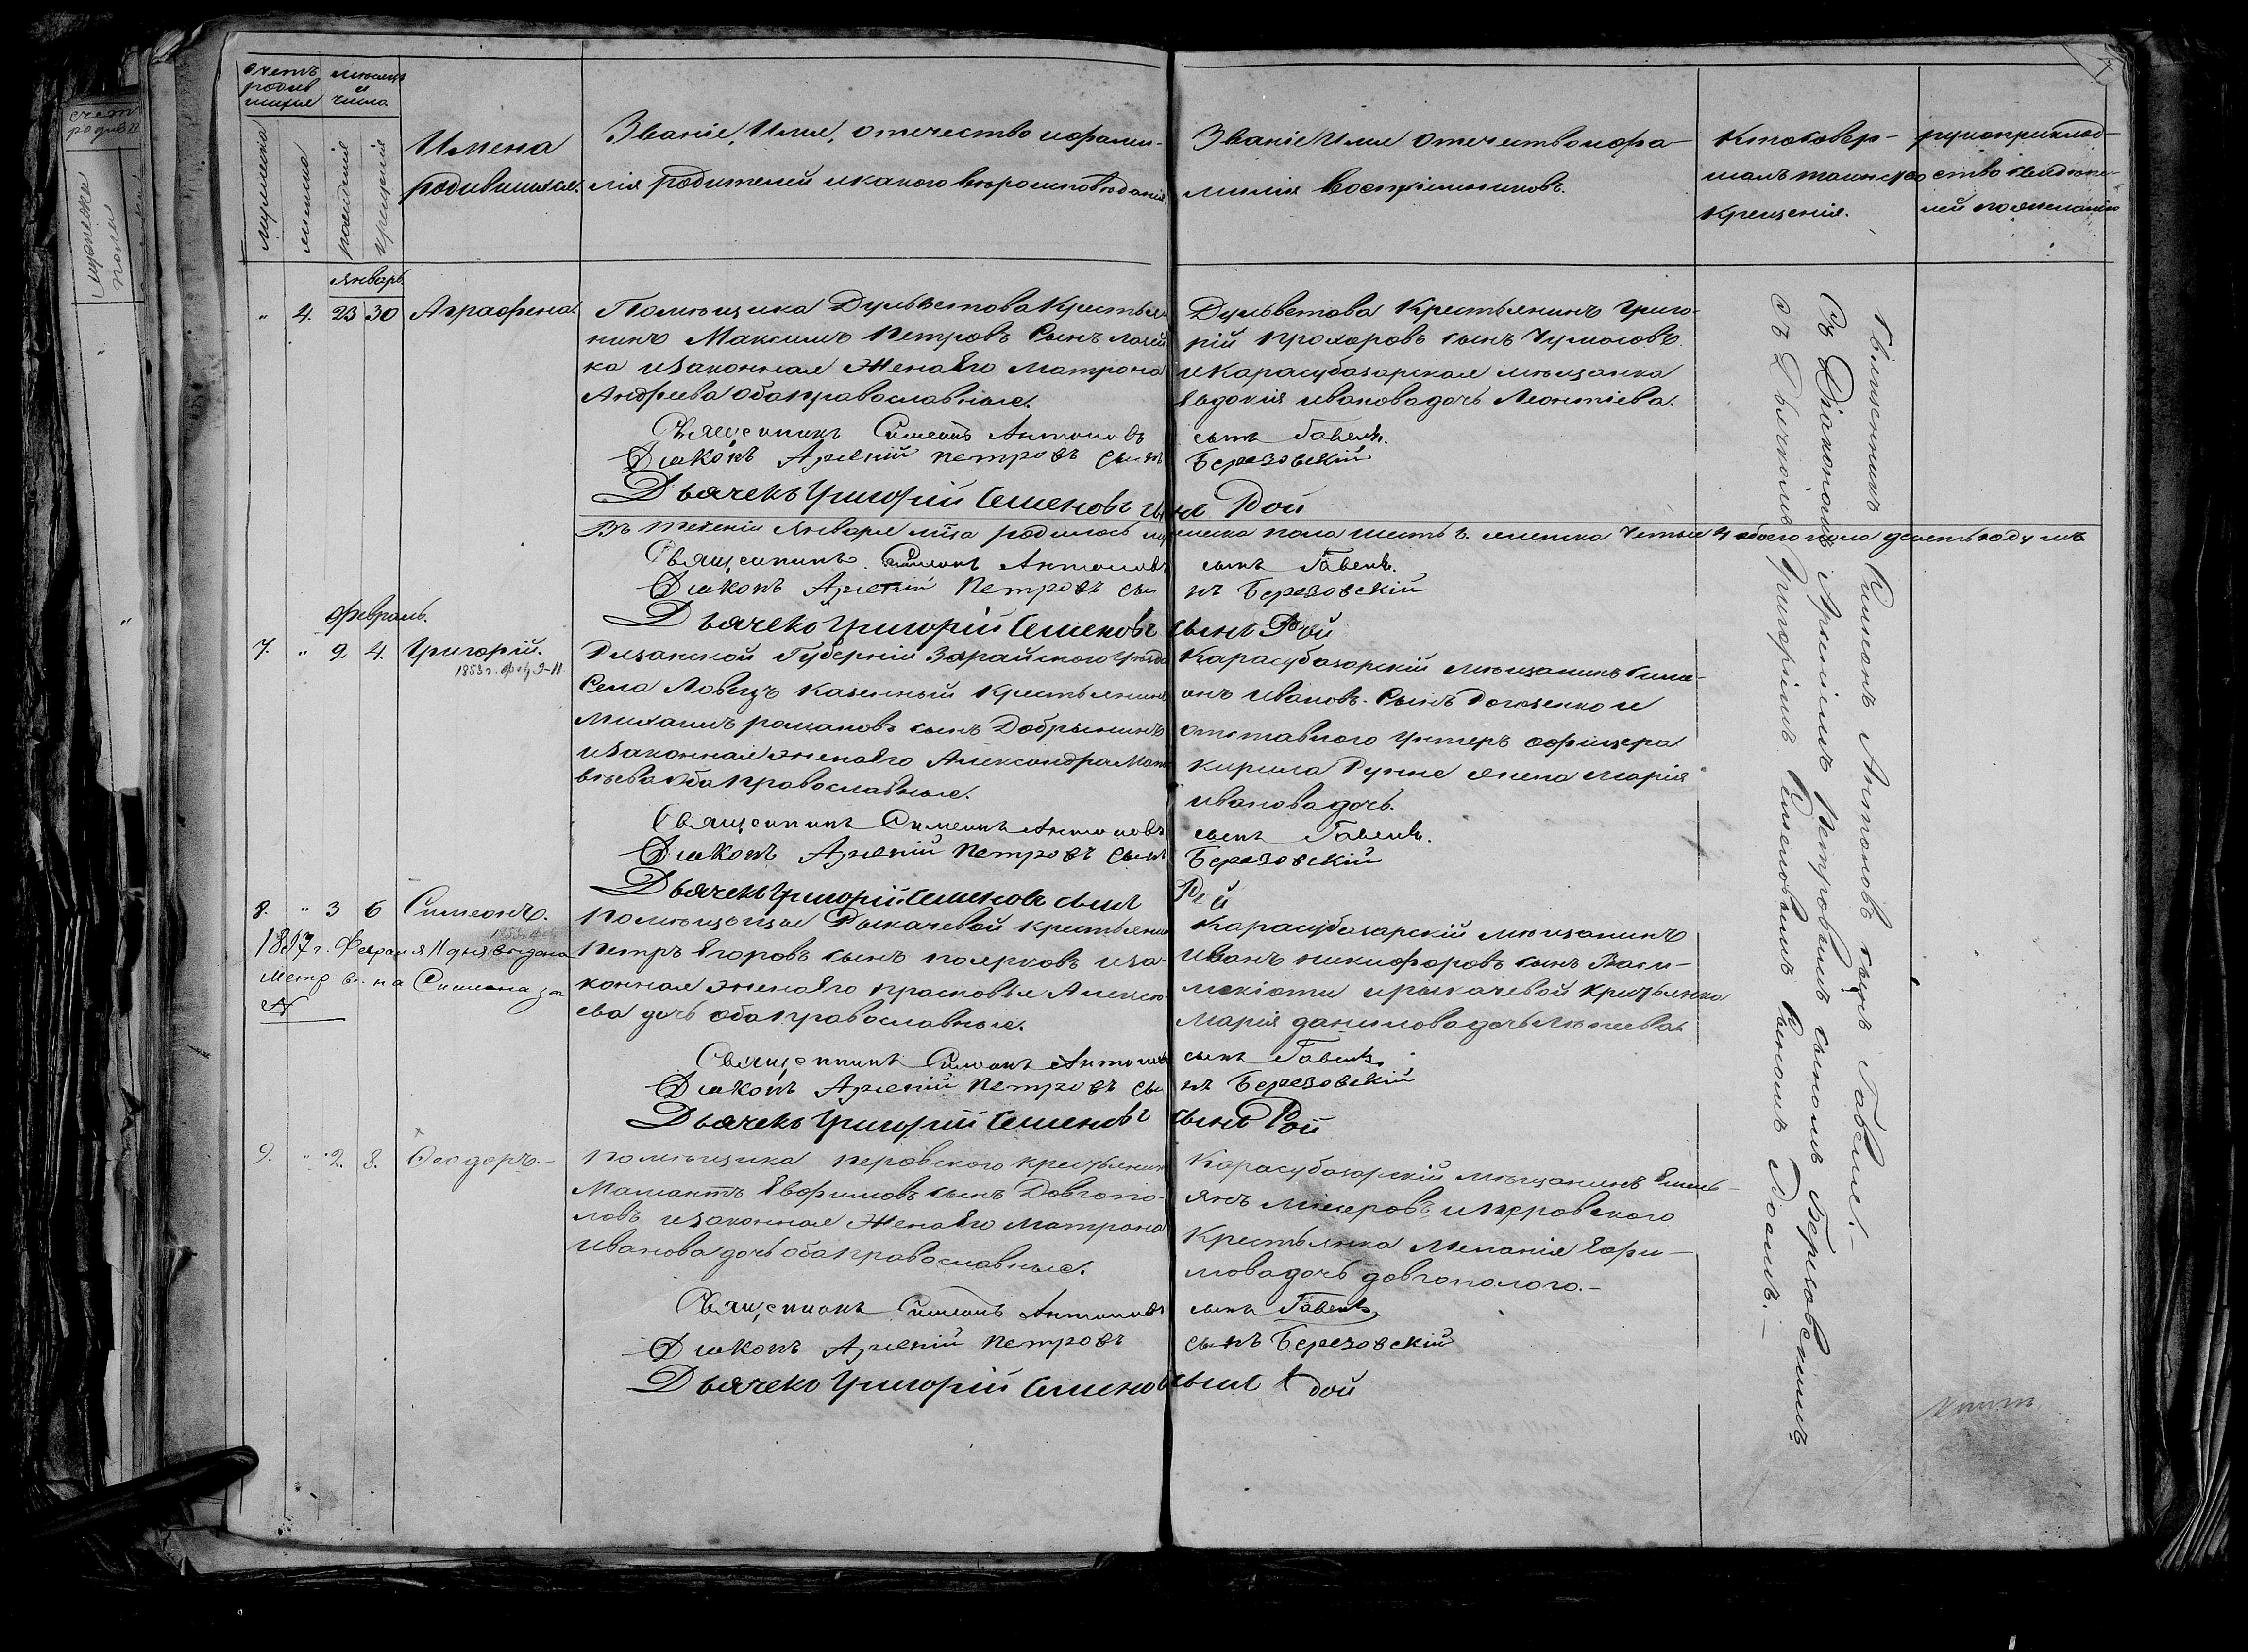 счетъ родив шихся
мѣсяцъ и число
мужеска
женска
рожденія
крещенія
Имена родившихся.
Званіе, Имя, отечество и фами-
лія родителей и какого вероисповѣданія.
Званіе Имя отечество и фа-
милія воспріемниковъ.
Кто совер-
шалъ таинство
крещенія.
рукоприклад-
ство свидѣте-
лей по желанію
январь
" 4. 23 30 Аграфена.
Помѣщика Дульветова Крестья
нинъ Максимъ Петровъ Сынъ
ка и законная Жена Его Матрона
Андреева оба православные.
Священникъ Симеонъ Антоновъ сынъ
Діаконъ Арсеній Петровъ сынъ Березовскій
Дьячекъ Григорій Семеновъ сынъ Рой
Дульветова Крестьянинъ Григо-
рій Прохоровъ сынъ Чумаковъ
и Карасубазарская мѣщанка
Евдокія Иванова дочь Леонтіева.
Въ теченіи Января м̃ца родилось мужеска пола шесть 6. женска четыре 4 обоего пола десять душъ
Священникъ Симеонъ Антоновъ сынъ
Діаконъ Арсеній Петровъ сынъ Березовскій
Дьячекъ Григорій Семеновъ сынъ Рой
февраль.
7. " 2 4. Григорій.
1853 г.
Рязанской Губерніи Зарайского Уѣзда
Села Ловецъ казенный крестьянинъ
Михаилъ романовъ сынъ Добрынинъ
и законная жена Его Александра Мат
вѣева оба православные.
Священникъ Симеонъ Антоновъ сынъ
Діаконъ Арсеній Петровъ сынъ Березовскій
Дьячекъ Григорій Семеновъ сынъ Рой
Карасубазарскій мѣщанинъ Симе-
онъ Ивановъ Сынъ и
отставного Унтеръ офицера
кирила жена Марія
Иванова дочь.
8. " 3 6 Симеонъ.
Февраля 11 дня выдана
Метр. на Симеона за
N
Помѣщицы Рыкачевой крестьянин
Петръ Егоровъ сынъ поярковъ и за-
конная жена Его прасковья Алексѣ-
ева дочь оба православные.
Священникъ Симеонъ Антоновъ сынъ
Діаконъ Арсеній Петровъ сынъ Березовскій
Дьячекъ Григорій Семеновъ сынъ Рой
Карасубазарскій мѣщанинъ
Иванъ никифоровъ сынъ
и рыкачевой крестьянка
Марія данилова дочь
9. " 2. 8. Феодоръ.
помѣщика перовского крестьянин
Мамантъ Евфимовъ сынъ Довгопо-
ловъ и законная Жена Его Матрона
Иванова дочь оба православные.
Священникъ Симеонъ Антоновъ сынъ
Діаконъ Арсеній Петровъ сынъ Березовскій
Дьячекъ Григорій Семеновъ сынъ Рой
Карасубазарскій мѣщанинъ Емель-
янъ и перовского
Крестьянка Меланія Ефи-
мова дочь довгополого.-
Священникъ Симеонъ Антоновъ сынъ
Съ Діакономъ Арсеніемъ Петровымъ сыномъ Березовскимъ
съ Дьячкомъ Григоріемъ Семеновымъ сыномъ Роемъ.-